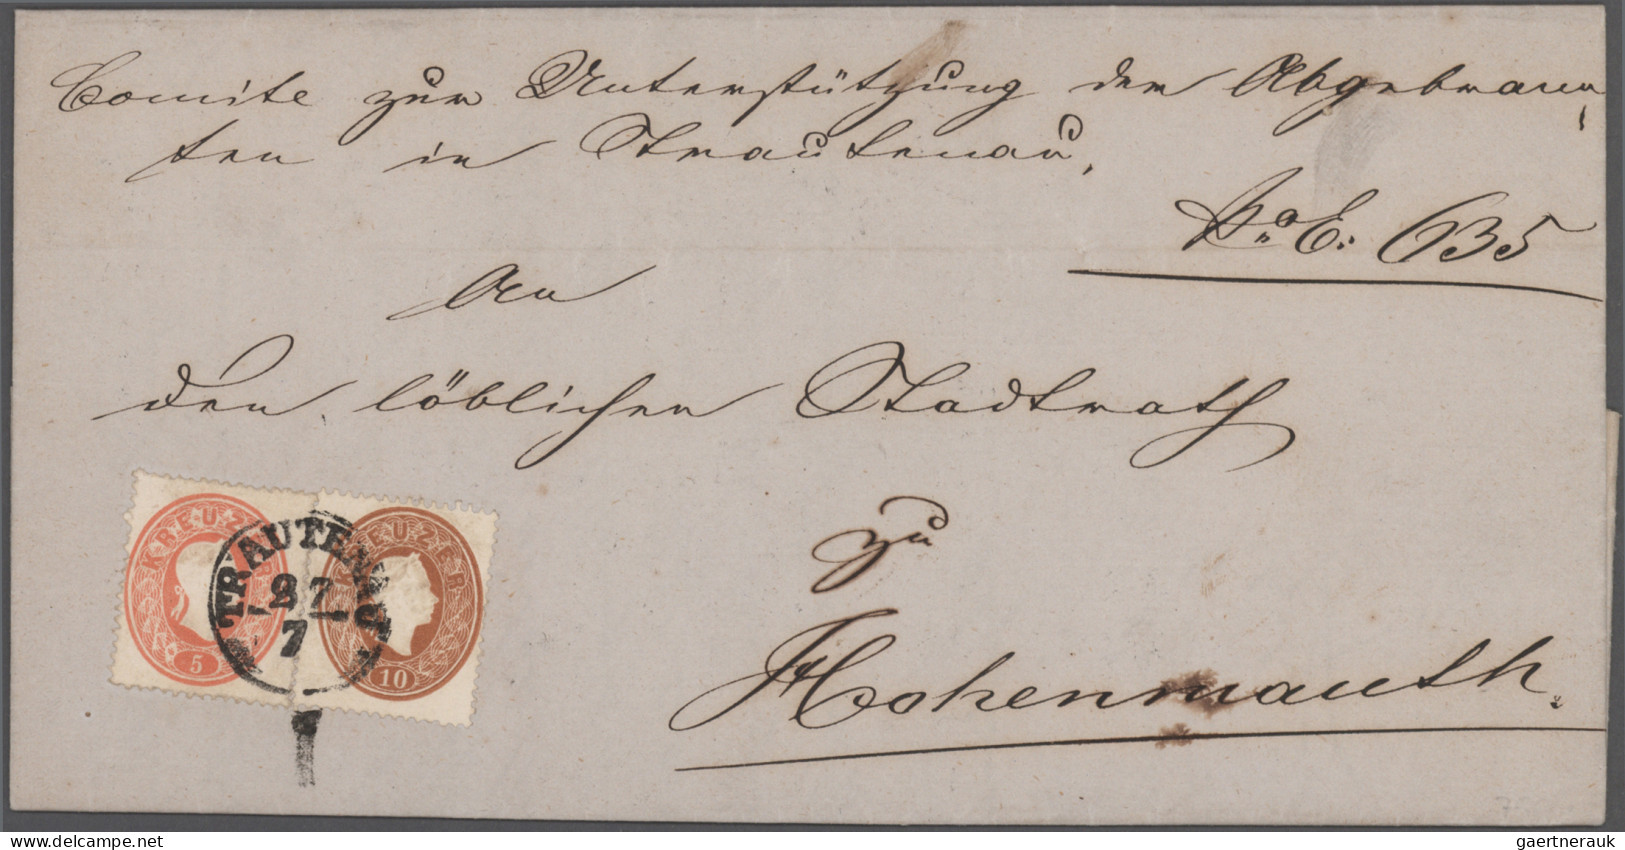 Comite zur Unterstützung der Abgebrann
ten in Trautenau.
E: 635
An
den löblichen Stadtrath
zu
Hohenmauth.
KREUZER
5
KREUZER
10
TRAUTENAU
27
7
www.delcampe.net
gaertnerauk